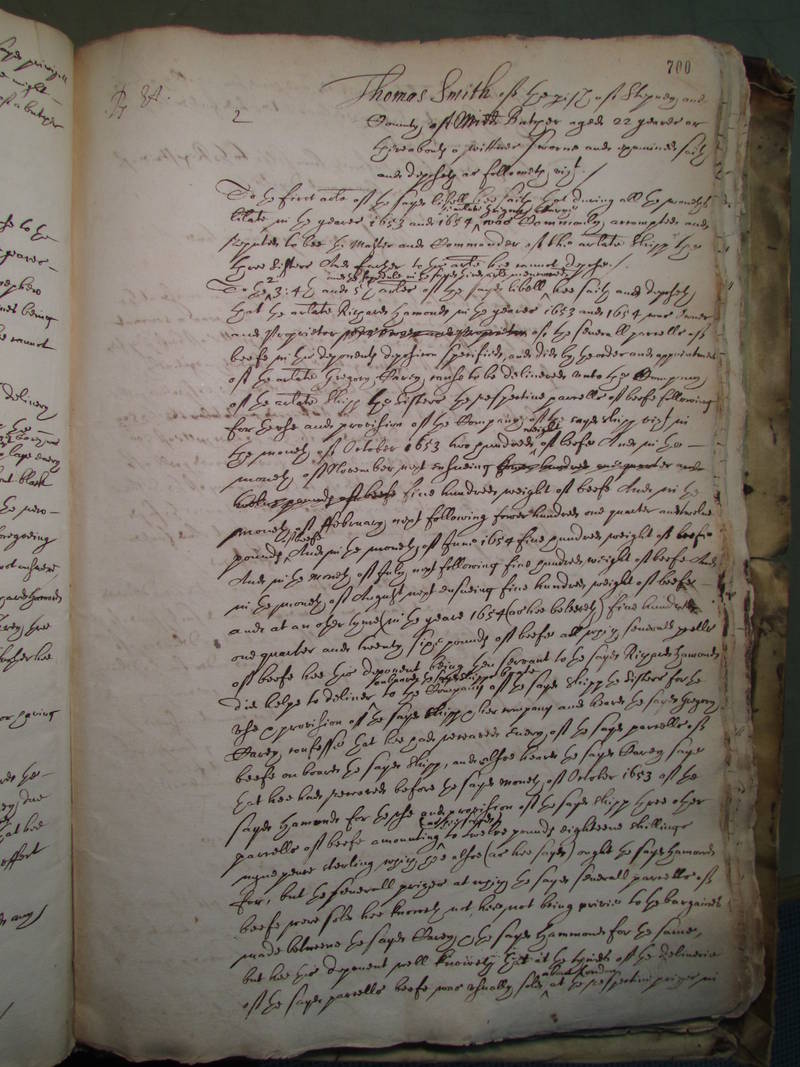 700
2
Thomas Smith of the parish of Stepney and
County of Midd Butcher aged 22 yeares or
thereabouts a wittnes sworne and examined saith
and deposeth as followeth vizt
To the first arle of the sayd libell hee saith that during all the moneths
libellate in the yeares 1653 and 1654 was Commonly accompted and
reputed to bee the Master and Commander of the arlate shipp the
three Sisters And further to this arlte hee cannot depose./
To the 2 3: 4th and 5th arles of the sayd libell hee saith and deposeth
that the arlate Richard Hamond in the yeares 1653 and 1654 was Owner
and Proprietor of the severall parcells of
beefe in his deponents deposition specified, and did by the order and appointment
of the arlate Gregory Varey cause to be delivered unto the Company
of the arlate shipp the Sisters the respective parcells of beefe following
for the use and provision of the Company of the sayd shipp vizt in
the moneth of October 1653 two hundred weight of beefe And in the
moneth of November next ensueing
five hundred weight of beefe And in the
moneth of ffebruary next following fower hundred one quarter and twelve
pounds of beefe And in the moneth of June 1654 five hundred weight of beefe
And in the moneth of July next following five hundred weight of beefe And
in the moneth of August next ensueing five hundred weight of beefe
and at an other tyme (in the yeare 1654 (as hee beleeveth) five hundred
one quarter and twenty six pounds of beefe all which severall parcells
of beefe hee this deponent being then servant to the sayd Richard Hamond
did helpe to deliver to the Company of the sayd shipp the Sisters for the
use & provision of the sayd shipp & her company and heard the sayd Gregory
Varey confesse that hee had received every of the sayd parcells of
beefe on board the sayd shipp, and alsoe heard the sayd Varey saye
that hee had received before the sayd moneth of October 1653 of the
sayd Hamond for the use and provision of the sayd shipp three other
parcells of beefe amounting to twelve pounds eighteene shillings
nyne pence sterling which hee alsoe (as hee sayd) ought the sayd Hamond
for, but the severall prizes at which the sayd severall parcells of
beefe were sold hee knoweth not, hee not being privie to the bargaines
made betweene the sayd Varey & the sayd Hammond for the same,
but hee this deponent well knoweth that at the tymes of the deliverie
of the sayd parcells beefe was usually sold about London at the respective prizes in